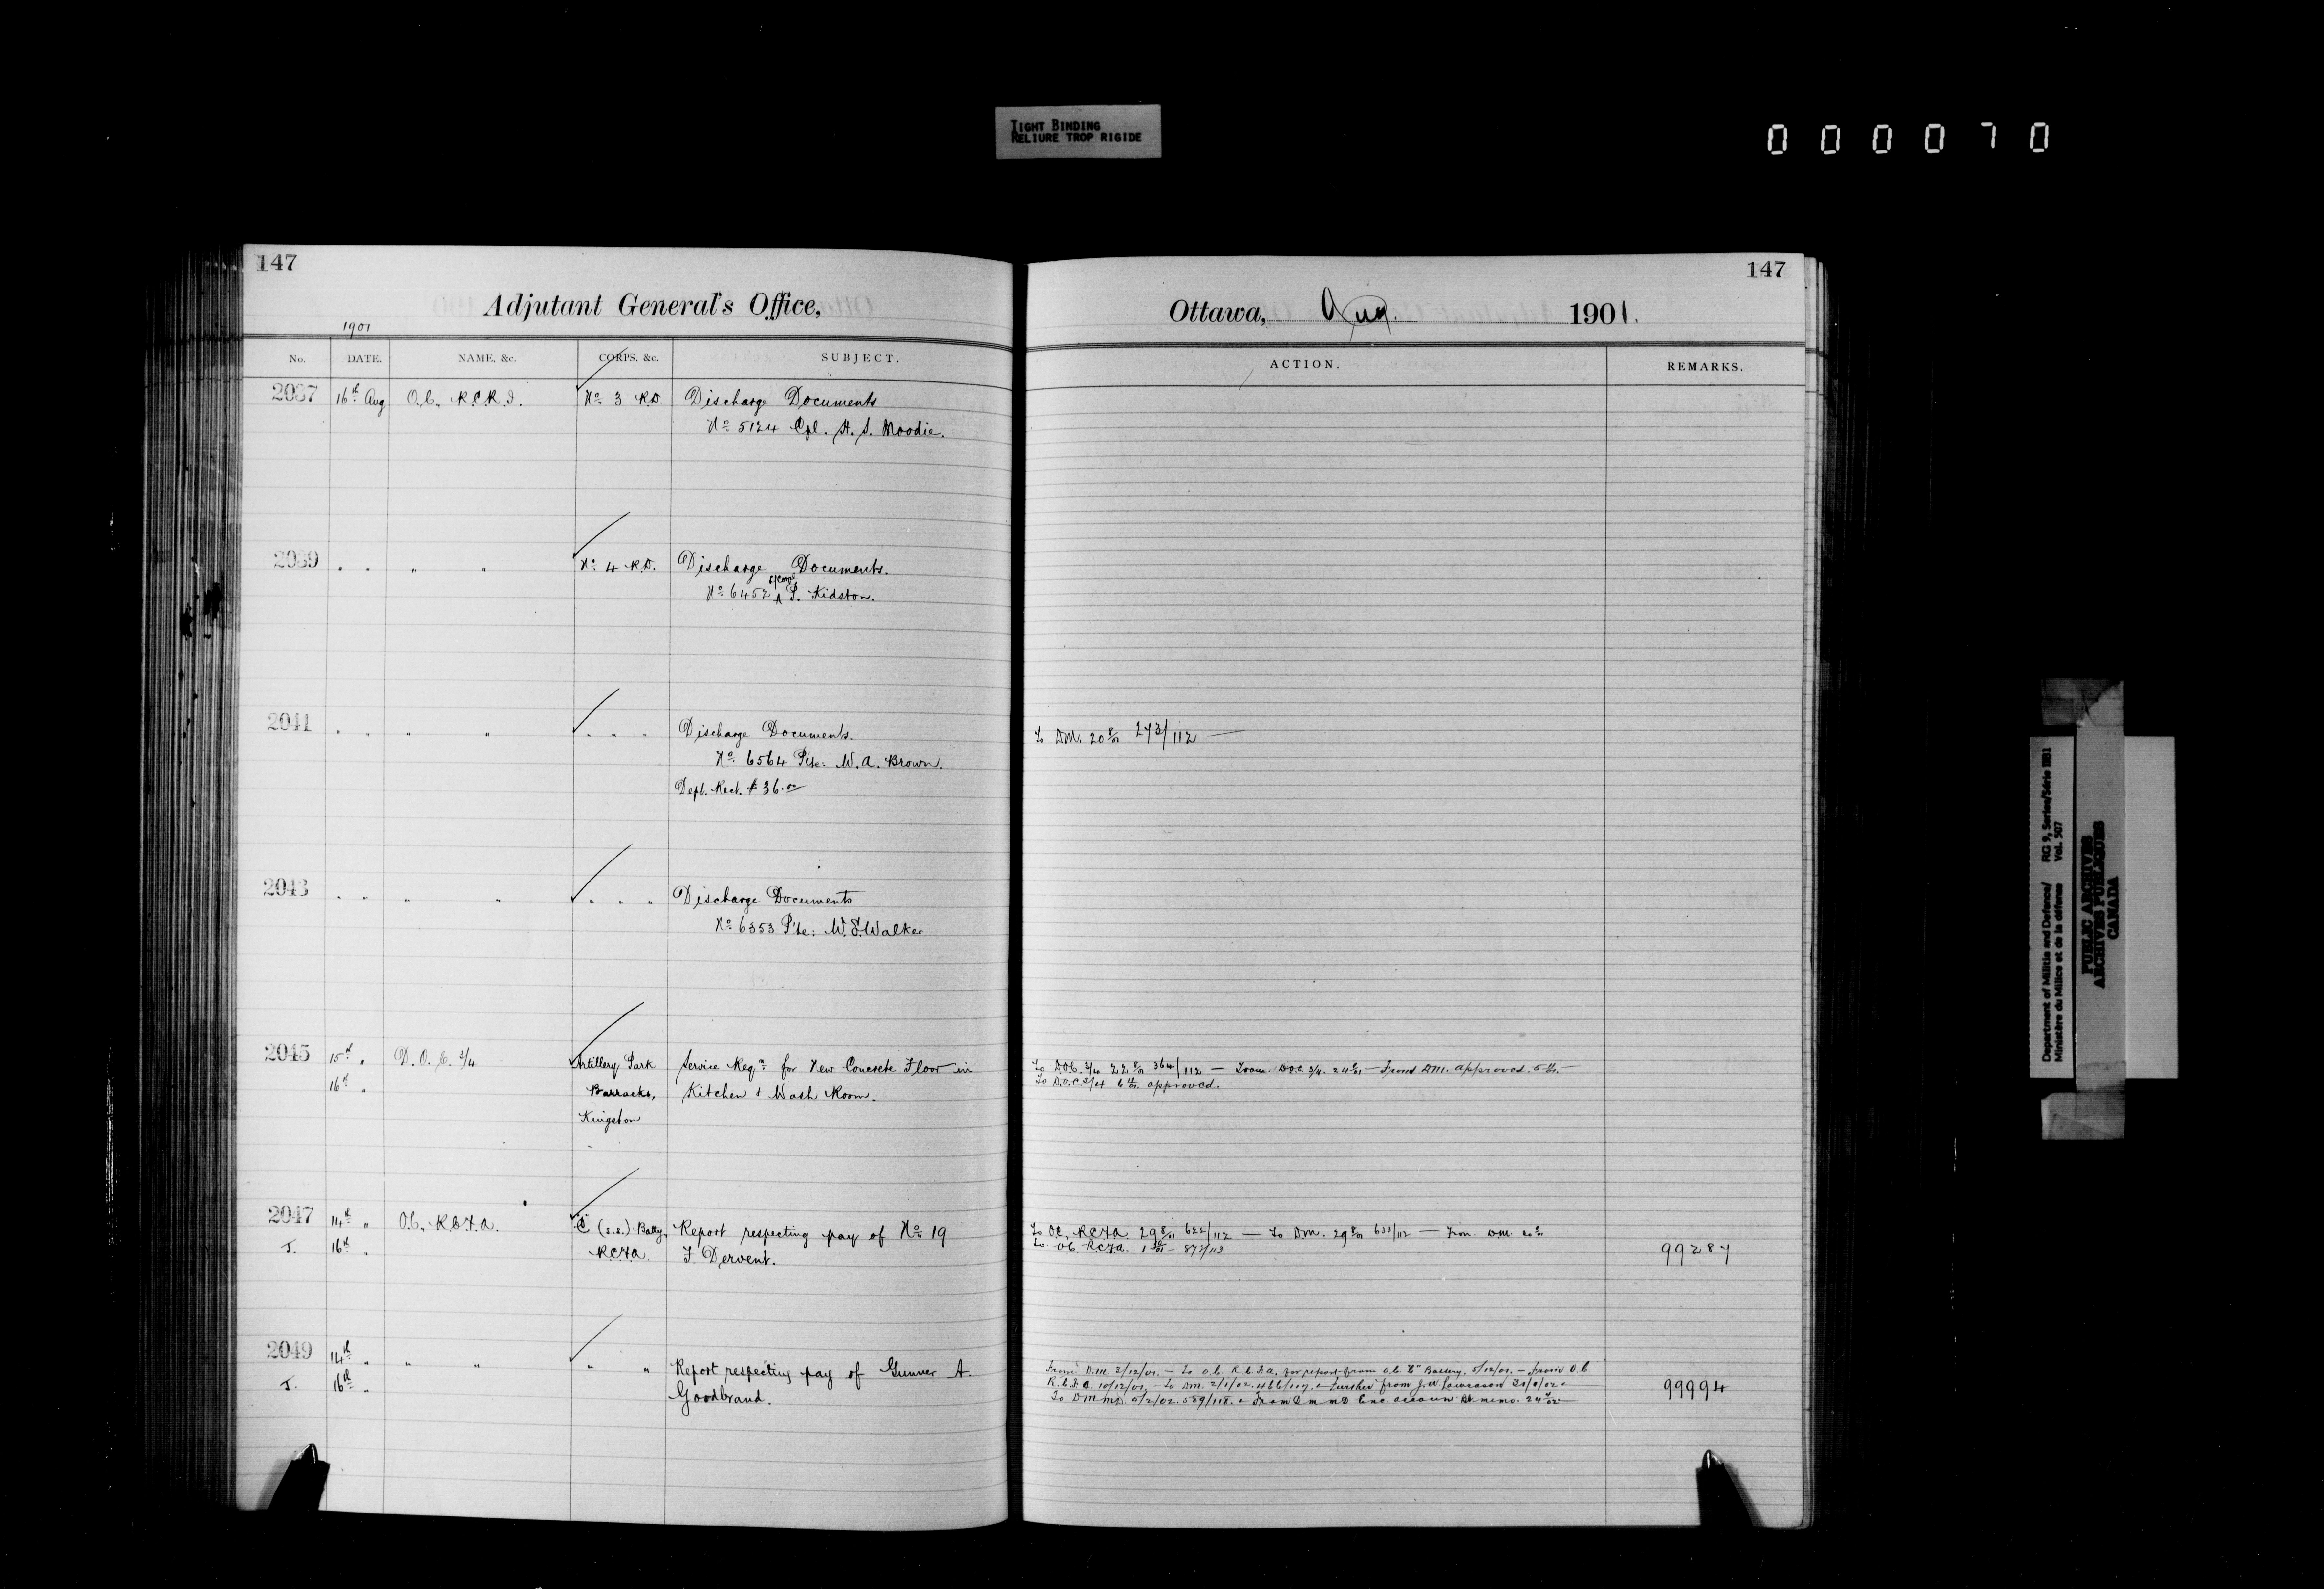 TIGHT BINDING
RELIURE TROP RIGIDE
000070
147
Adjutant General's Office,
1901
No. DATE. NAME, &c. CORPS, &c. SUBJECT.
2037 16th Aug O.C., R.C.R.I. No 3 R.D. Discharge Documents
No 5124 Cpl. H. S. Moodie.
2039 " " " " No 4 R.D. Discharge Documents.
No 6452 P. Kidston.
2041 " " " " " " " Discharge Documents.
No 6564 Pte: W. A. Brown.
Dept. Rect. $36.00
2043 " " " " " " " Discharge Documents
No 6353 Pte: W. S. Walker
2045 15th " D.O.C. 3/4 Artillery Park Service Reqn for New Concrete Floor in
16th " Barracks, Kitchen & Wash Room.
Kingston
2047 14th " O.C., R.C.F.A. C (S.S.) Batty, Report respecting pay of No 19
J. 16th " R.C.F.A. F. Dervent.
2049 14th " " " " " Report respecting pay of Gunner A.
J. 16th " Goodbrand.
147
Ottawa, Aug. 1901.
ACTION. REMARKS.
To DM. 20 8/01 273/112 —
To D.O.C. 3/4 22 8/01 364/112 — From D.O.C. 3/4. 24 8/01 — From DM. approved.
To D.O.C. 3/4 approved.
To OC, RCFA 29 8/01 622/112 — To DM. 29 8/01 633/112 — From DM.
To OC. RCFA. 873/113
99287
From D.M. 2/12/01. — To O.C. R.C.F.A. for report from O.C. "C" Battery. 5/12/01. — From O.C
R.C.F.A. 10/12/01. — To DM. 2/1/02. 466/117. Further from J.W. 30/1/02
To DM 5/2/02. 589/118. memo. 24
99994
Department of Militia and Defence/
Ministère du Milice et de la défense
RG 9, Series/Série IIB1
Vol. 507
PUBLIC ARCHIVES
ARCHIVES PUBLIQUES
CANADA